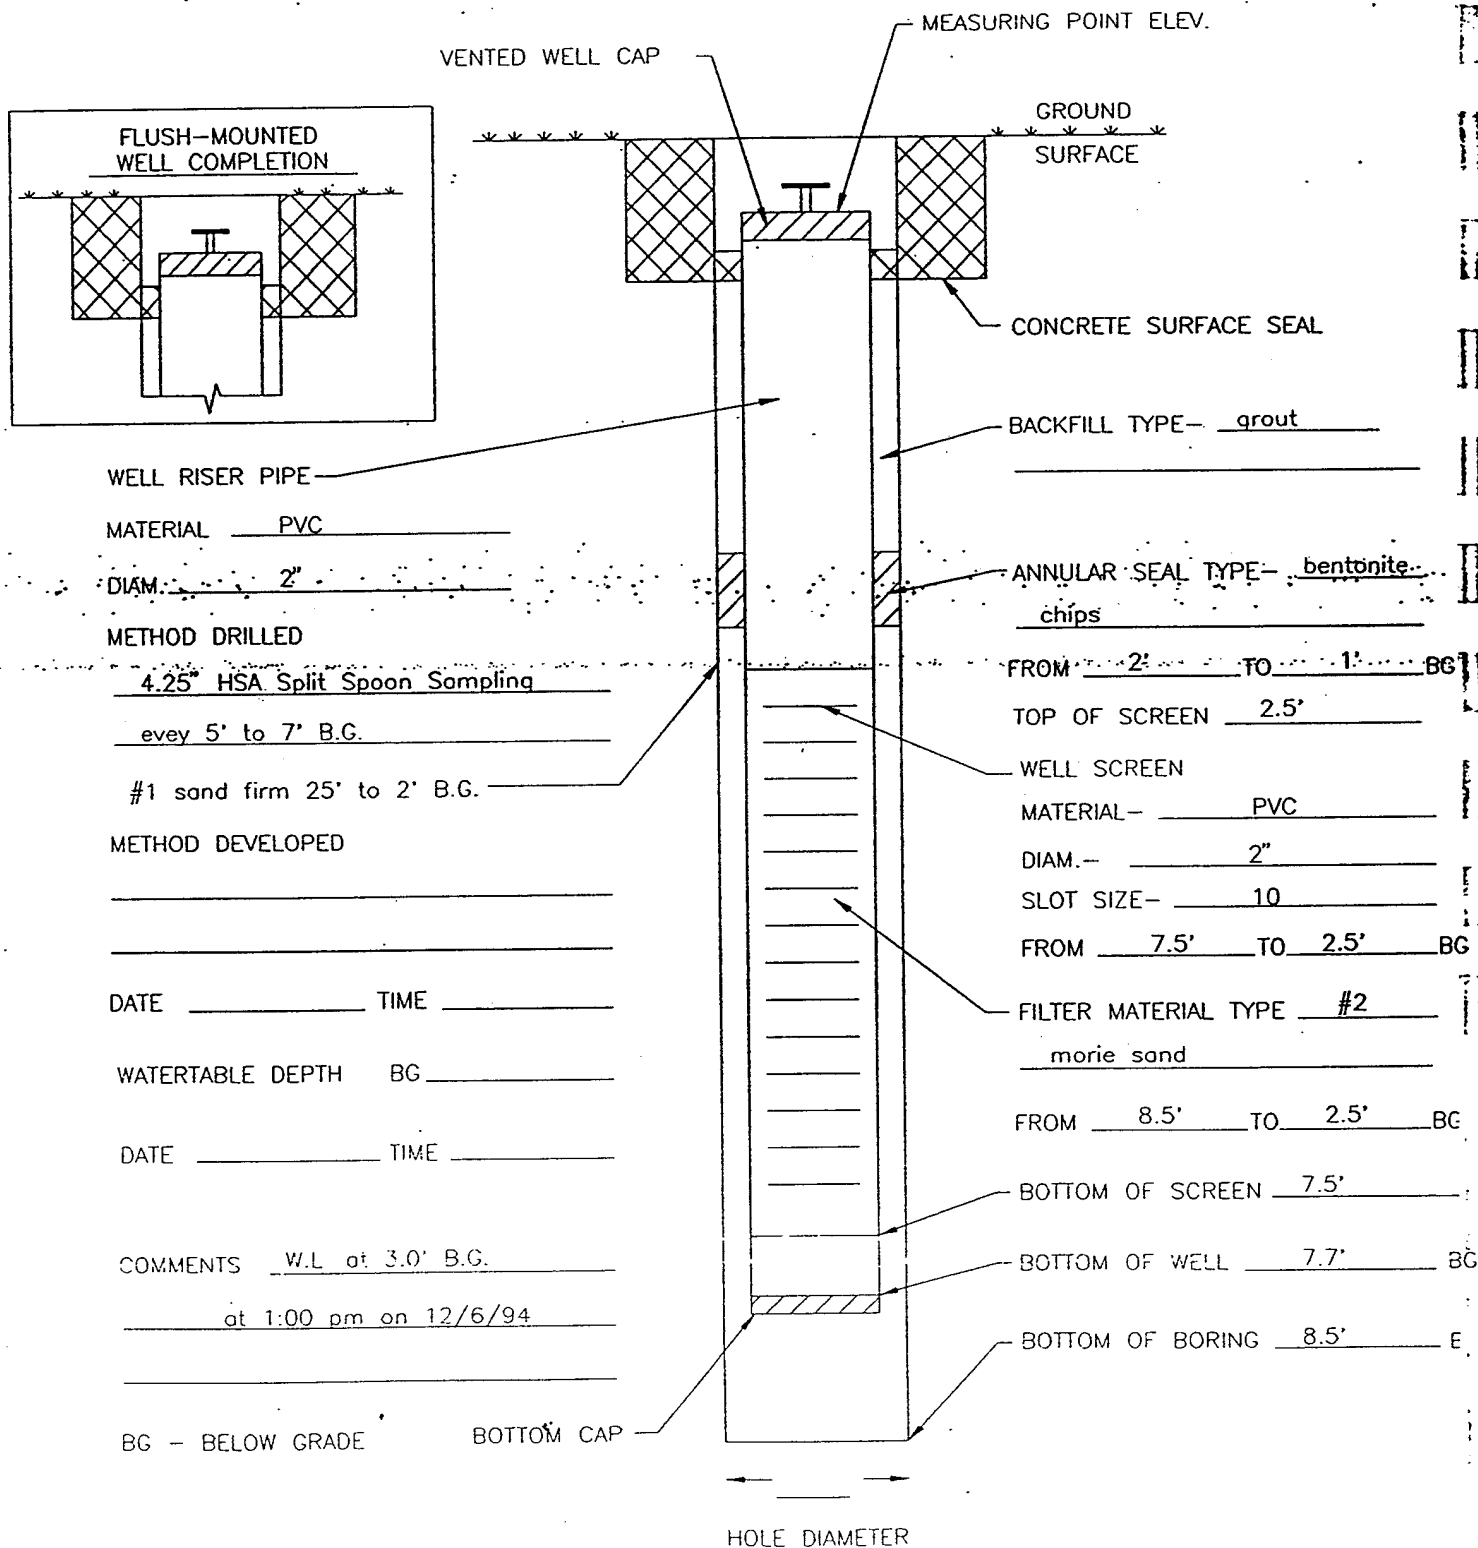 MEASURING POINT ELEV.
VENTED WELL CAP
FLUSH-MOUNTED
WELL COMPLETION
GROUND
SURFACE
CONCRETE SURFACE SEAL
BACKFILL TYPE- grout
WELL RISER PIPE
MATERIAL PVC
DIAM. 2"
METHOD DRILLED
4.25" HSA Split Spoon Sampling
evey 5' to 7' B.G.
#1 sand firm 25' to 2' B.G.
METHOD DEVELOPED
DATE TIME
WATERTABLE DEPTH BG
DATE TIME
COMMENTS W.L at 3.0' B.G.
at 1:00 pm on 12/6/94
BG - BELOW GRADE
BOTTOM CAP
ANNULAR SEAL TYPE- bentonite
chips
FROM 2' TO 1' BG
TOP OF SCREEN 2.5'
WELL SCREEN
MATERIAL- PVC
DIAM.- 2"
SLOT SIZE- 10
FROM 7.5' TO 2.5' BG
FILTER MATERIAL TYPE #2
morie sand
FROM 8.5' TO 2.5' BG
BOTTOM OF SCREEN 7.5'
BOTTOM OF WELL 7.7' BG
BOTTOM OF BORING 8.5'
HOLE DIAMETER